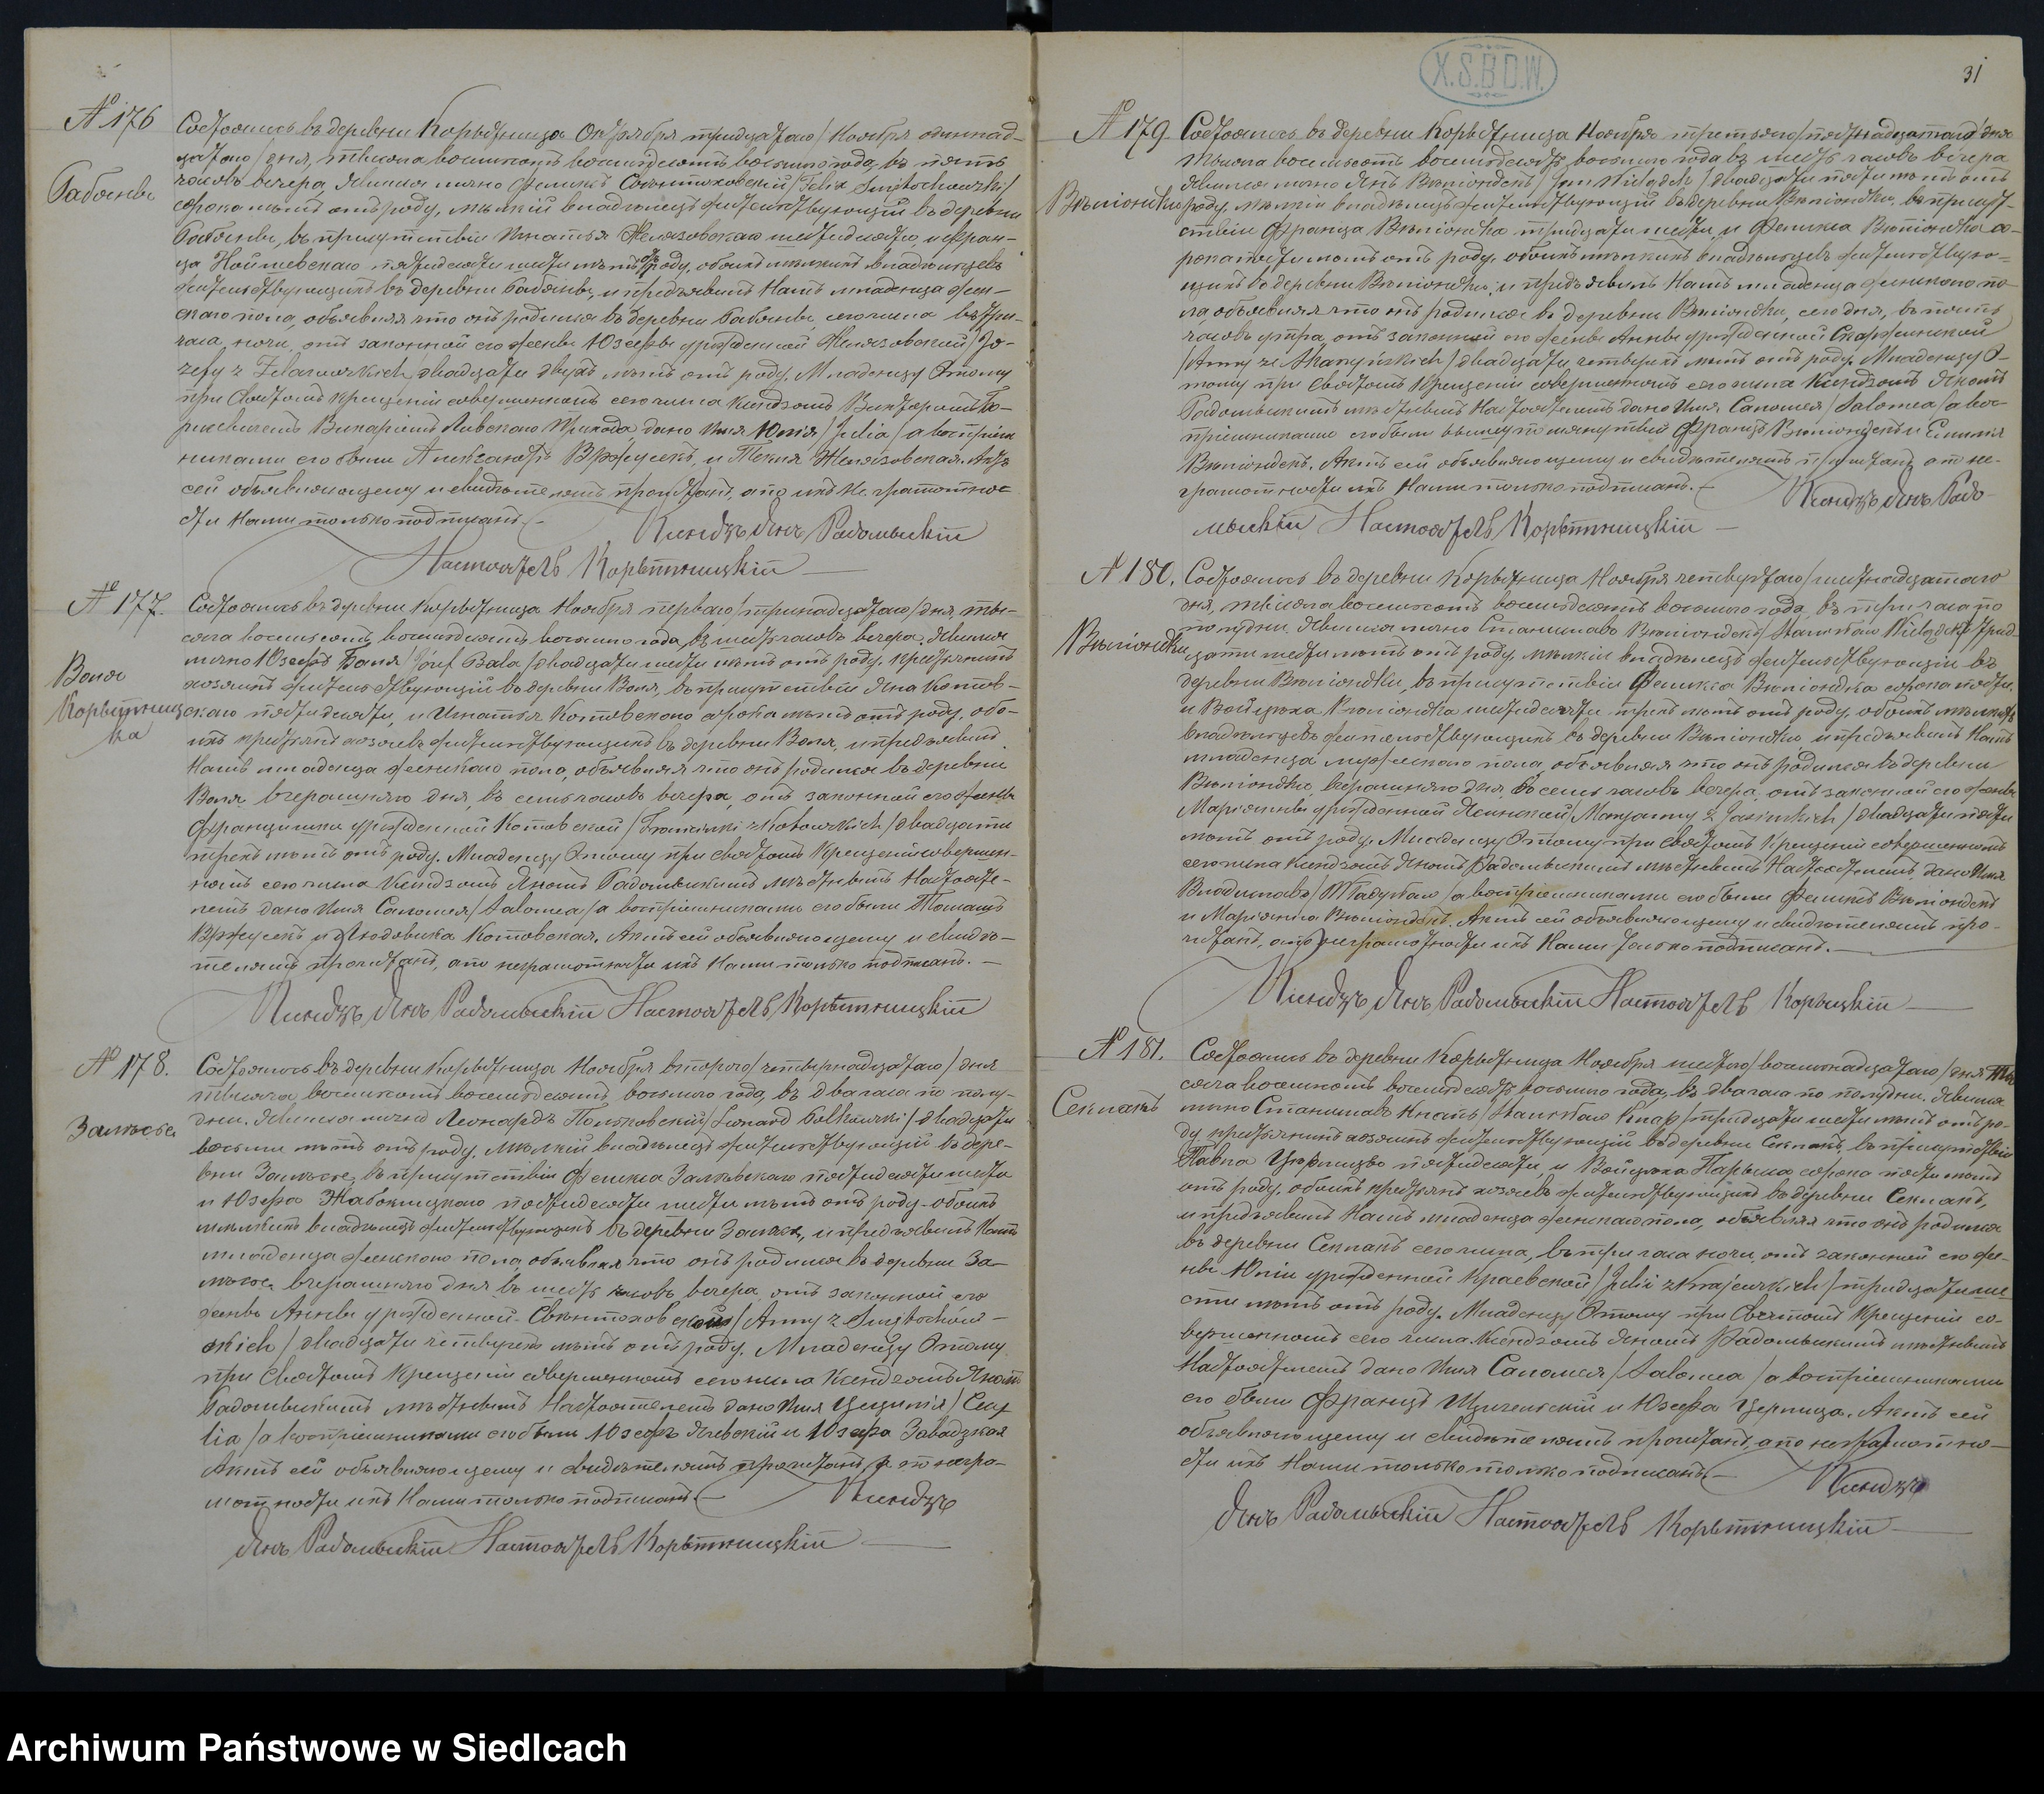 № 176
Бабонеы
Состоялось въ деревни Корытница Октября тридцатаго / Ноября одиннад-
цатаго / дня, тысяча восемьсотъ восемьдесятъ восьмаго года, въ пять
часовъ вечера, Явился лично Феликсъ Свѣнтоховскій / Felix Świętochowski /
сорока лѣтъ отъ роду, мѣлкій владѣлецъ жительствующій въ деревни
въ присутствіи Игнатія Желязовскаго шестидесяти, и Фран-
ца пятидесяти шести лѣтъ отъ роду, обоихъ мѣлкихъ владѣльцевъ
жительствующихъ въ деревни и предъявилъ Намъ младенца жен-
скаго пола, объявляя что онъ родился въ деревни сего числа въ три
часа ночи, отъ законной его жены Юзефы урожденной Желязовской / Jó-
zefy z Żelazowskich двадцати двухъ лѣтъ отъ роду. Младенцу этому
при Святомъ Крещеніи совершенномъ сего числа Ксендзомъ Викторомъ
Викаріемъ Ливскаго Прихода, дано Имя Юлія / Julia / а воспріем
никами его были Александръ Вржосекъ, и Текля Желязовская. Актъ
сей объявляющему и свидѣтелямъ прочитанъ, а по ихъ не грамотнос
ти Нами только подписанъ. —
Ксендзъ Янъ Радомыскій
Настоятель Корытницкій —
№ 177.
Воля
Корытниц
ка
Состоялось въ деревни Корытница Ноября перваго / тринадцатаго / дня, ты-
сяча восемьсотъ восемьдесятъ восьмаго года, въ шесть часовъ вечера, Явился
лично Юзефъ Баля / Józef Bala / двадцати шести лѣтъ отъ роду, крестьянинъ
хозяинъ жительствующій въ деревни Воля, въ присутствіи Яна Котов-
скаго пятидесяти, и Игнатія Котовскаго сорока лѣтъ отъ роду, обо-
ихъ крестьянъ хозяевъ жительствующихъ въ деревни Воля, и предъявилъ
Намъ младенца женскаго пола, объявляя что онъ родился въ деревни
Воля вчерашняго дня, въ семь часовъ вечера, отъ законной его жены
Францишки урожденной Котовской / Franciszki z Kotowskich / двадцати
трехъ лѣтъ отъ роду. Младенцу этому при Святомъ Крещеніи совершен-
номъ сего числа Ксендзомъ Яномъ Радомыскимъ мѣстнымъ Настояте-
лемъ дано Имя Саломея / Salomea / а воспріемниками его были Томашъ
Вржосекъ и Людовика Котовская. Актъ сей объявляющему и свидѣ-
телямъ прочитанъ, а по неграмотности ихъ Нами только подписанъ. —
Ксендзъ Янъ Радомыскій Настоятель Корытницкій
№ 178.
Залѣсье
Состоялось въ деревни Корытница Ноября втораго / четырнадцатаго / дня
тысяча, восемьсотъ восемьдесятъ восьмаго года, въ два часа по полу-
дни. Явился лично Леонардъ Польковскій / Leonard Polkowski / двадцати
восьми лѣтъ отъ роду, мѣлкій владѣлецъ жительствующій въ дере-
вни Залѣсье, въ присутствіи Феликса Залѣвскаго пятидесяти шести
и Юзефа Жабокицкаго пятидесяти шести лѣтъ отъ роду обоихъ
мѣлкихъ владѣлецъ жительствующихъ въ деревни Залѣсье, и предъявилъ Намъ
младенца женскаго пола объявляя что онъ родился въ деревни За-
лѣсье вчерашняго дня въ шесть часовъ вечера, отъ законной его
жены Анны урожденной Свѣнтоховской / Anny z Świętochow-
skich / двадцати четырехъ лѣтъ отъ роду. Младенцу этому
при Святомъ Крещеніи совершенномъ сего числа Ксендзомъ Яномъ
Радомыскимъ мѣстнымъ Настоятелемъ дано Имя Цецилія / Cecy
lia / а воспріемниками его были Юзефъ и Юзефа Завадзкая
Актъ сей объявляющему и свидѣтелямъ прочитанъ, а по негра-
мотности ихъ Нами только подписанъ. — Ксендзъ
Янъ Радомыскій Настоятель Корытницкій —
X.S.B.D.W.
31
№ 179.
Вѣліондки
Состоялось въ деревни Корытница Ноября третьяго / пятнадцатаго / дня
тысяча восемьсотъ восемьдесятъ восьмаго года въ шесть часовъ вечера
Явился лично Янъ Вѣліондекъ / Jan Wielądek / двадцати пяти лѣтъ отъ
роду, мѣлкій владѣлецъ жительствующій въ деревни Вѣліондки, въ присут-
ствіи Франца Вѣліондка тридцати шести, и Феликса Вѣліондка со-
рока пяти лѣтъ отъ роду, обоихъ мѣлкихъ владѣльцевъ жительствую-
щихъ въ деревни Вѣліондки, и предъявилъ Намъ младенца женскаго по-
ла объявляя что онъ родился въ деревни Вѣліондки, сего дня, въ пять
часовъ утра, отъ законной его жены Анны урожденной Скаржинской
/ Anny ze Skarzyńskich / двадцати четырехъ лѣтъ отъ роду. Младенцу э-
тому при Святомъ Крещеніи совершенномъ сего числа Ксендзомъ Яномъ
Радомыскимъ мѣстнымъ Настоятелемъ дано Имя Саломея / Salomea / а вос-
пріемниками его были вышеупомянутый Францъ Вѣліондекъ и Емилія
Вѣліондекъ. Актъ сей объявляющему и свидѣтелямъ прочитанъ, а по не-
грамотности ихъ Нами только подписанъ. — Ксендзъ Янъ Радо-
мыскій Настоятель Корытницкій —
№ 180.
Вѣліондки
Состоялось въ деревни Корытница Ноября четвертаго / шестнадцатаго
дня, тысяча восемьсотъ восемьдесятъ восьмаго года, въ три часа по
полудни. Явился лично Станиславъ Вѣліондекъ / Stanisław Wielądek / трид-
цати шести лѣтъ отъ роду, мѣлкій владѣлецъ жительствующій въ
деревни Вѣліондки, въ присутствіи Феликса Вѣліондка сорока пяти,
и Войцѣха Вѣліондка шестидесяти трехъ лѣтъ отъ роду, обоихъ мѣлкихъ
владѣльцевъ жительствующихъ въ деревни Вѣліондки, и предъявилъ Намъ
младенца мужескаго пола, объявляя что онъ родился въ деревни
Вѣліондки, вчерашняго дня, въ семь часовъ вечера, отъ законной его жены
Марьянны урожденной Ясинской / Maryanny z Jasińskich / двадцати пяти
лѣтъ отъ роду. Младенцу этому при Святомъ Крещеніи совершенномъ
сего числа Ксендзомъ Яномъ Радомыскимъ мѣстнымъ Настоятелемъ, дано Имя
Владиславъ / Władysław / а воспріемниками его были Феликсъ Вѣліондекъ
и Марьянна Вѣліондекъ. Актъ сей объявляющему и свидѣтелямъ про-
читанъ, а по неграмотности ихъ Нами только подписанъ. —
Ксендзъ Янъ Радомыскій Настоятель Корыцкій —
№ 181.
Секлакъ
Состоялось въ деревни Корытница Ноября шестаго / восемнадцатаго / дня ты
сяча восемьсотъ восемьдесятъ восьмаго года, въ два часа по полудни. Явился
лично Станиславъ Кнапъ / Stanisław Knap / тридцати шести лѣтъ отъ ро-
ду крестьянинъ хозяинъ жительствующій въ деревни Секлакъ, въ присутствіи
Павла пятидесяти, и Войцѣха Парыса сорока пяти лѣтъ
отъ роду, обоихъ крестьянъ хозяевъ жительствующихъ въ деревни Секлакъ,
и предъявилъ Намъ младенца женскаго пола, объявляя что онъ родился
въ деревни Секлакъ сего числа, въ три часа ночи, отъ законной его же-
ны Юліи урожденной Краевской / Julii z Krajewskich / тридцати ше-
сти лѣтъ отъ роду. Младенцу этому при Святомъ Крещеніи со-
вершенномъ сего числа Ксендзомъ Яномъ Радомыскимъ мѣстнымъ
Настоятелемъ дано Имя Саломея / Salomea / а воспріемниками
его были Францъ и Юзефа Актъ сей
объявляющему и свидѣтелямъ прочитанъ, а по неграмотно-
сти ихъ Нами только только подписанъ. — Ксендзъ
Янъ Радомыскій Настоятель Корытницкій —
Archiwum Państwowe w Siedlcach